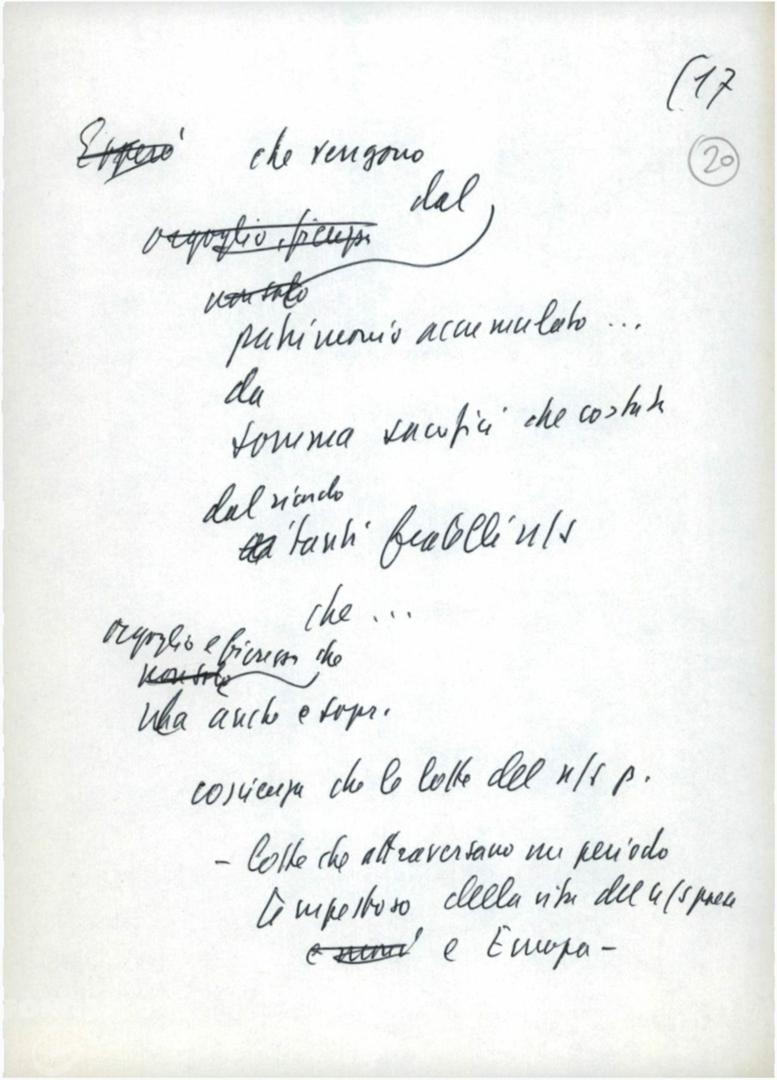 (17
20
che vengono
dal
orgoglio, fierezza
non solo
patrimonio accumulato ...
da
somma sacrifici che costata
dal ricordo
tanti fratelli n/s
che ...
orgoglio e fierezza che
non solo
ma anche e sopr.
coscienza che le lotte del n/s p.
- lotte che attraversano un periodo
tempestoso della vita del n/s paese
e Europa -